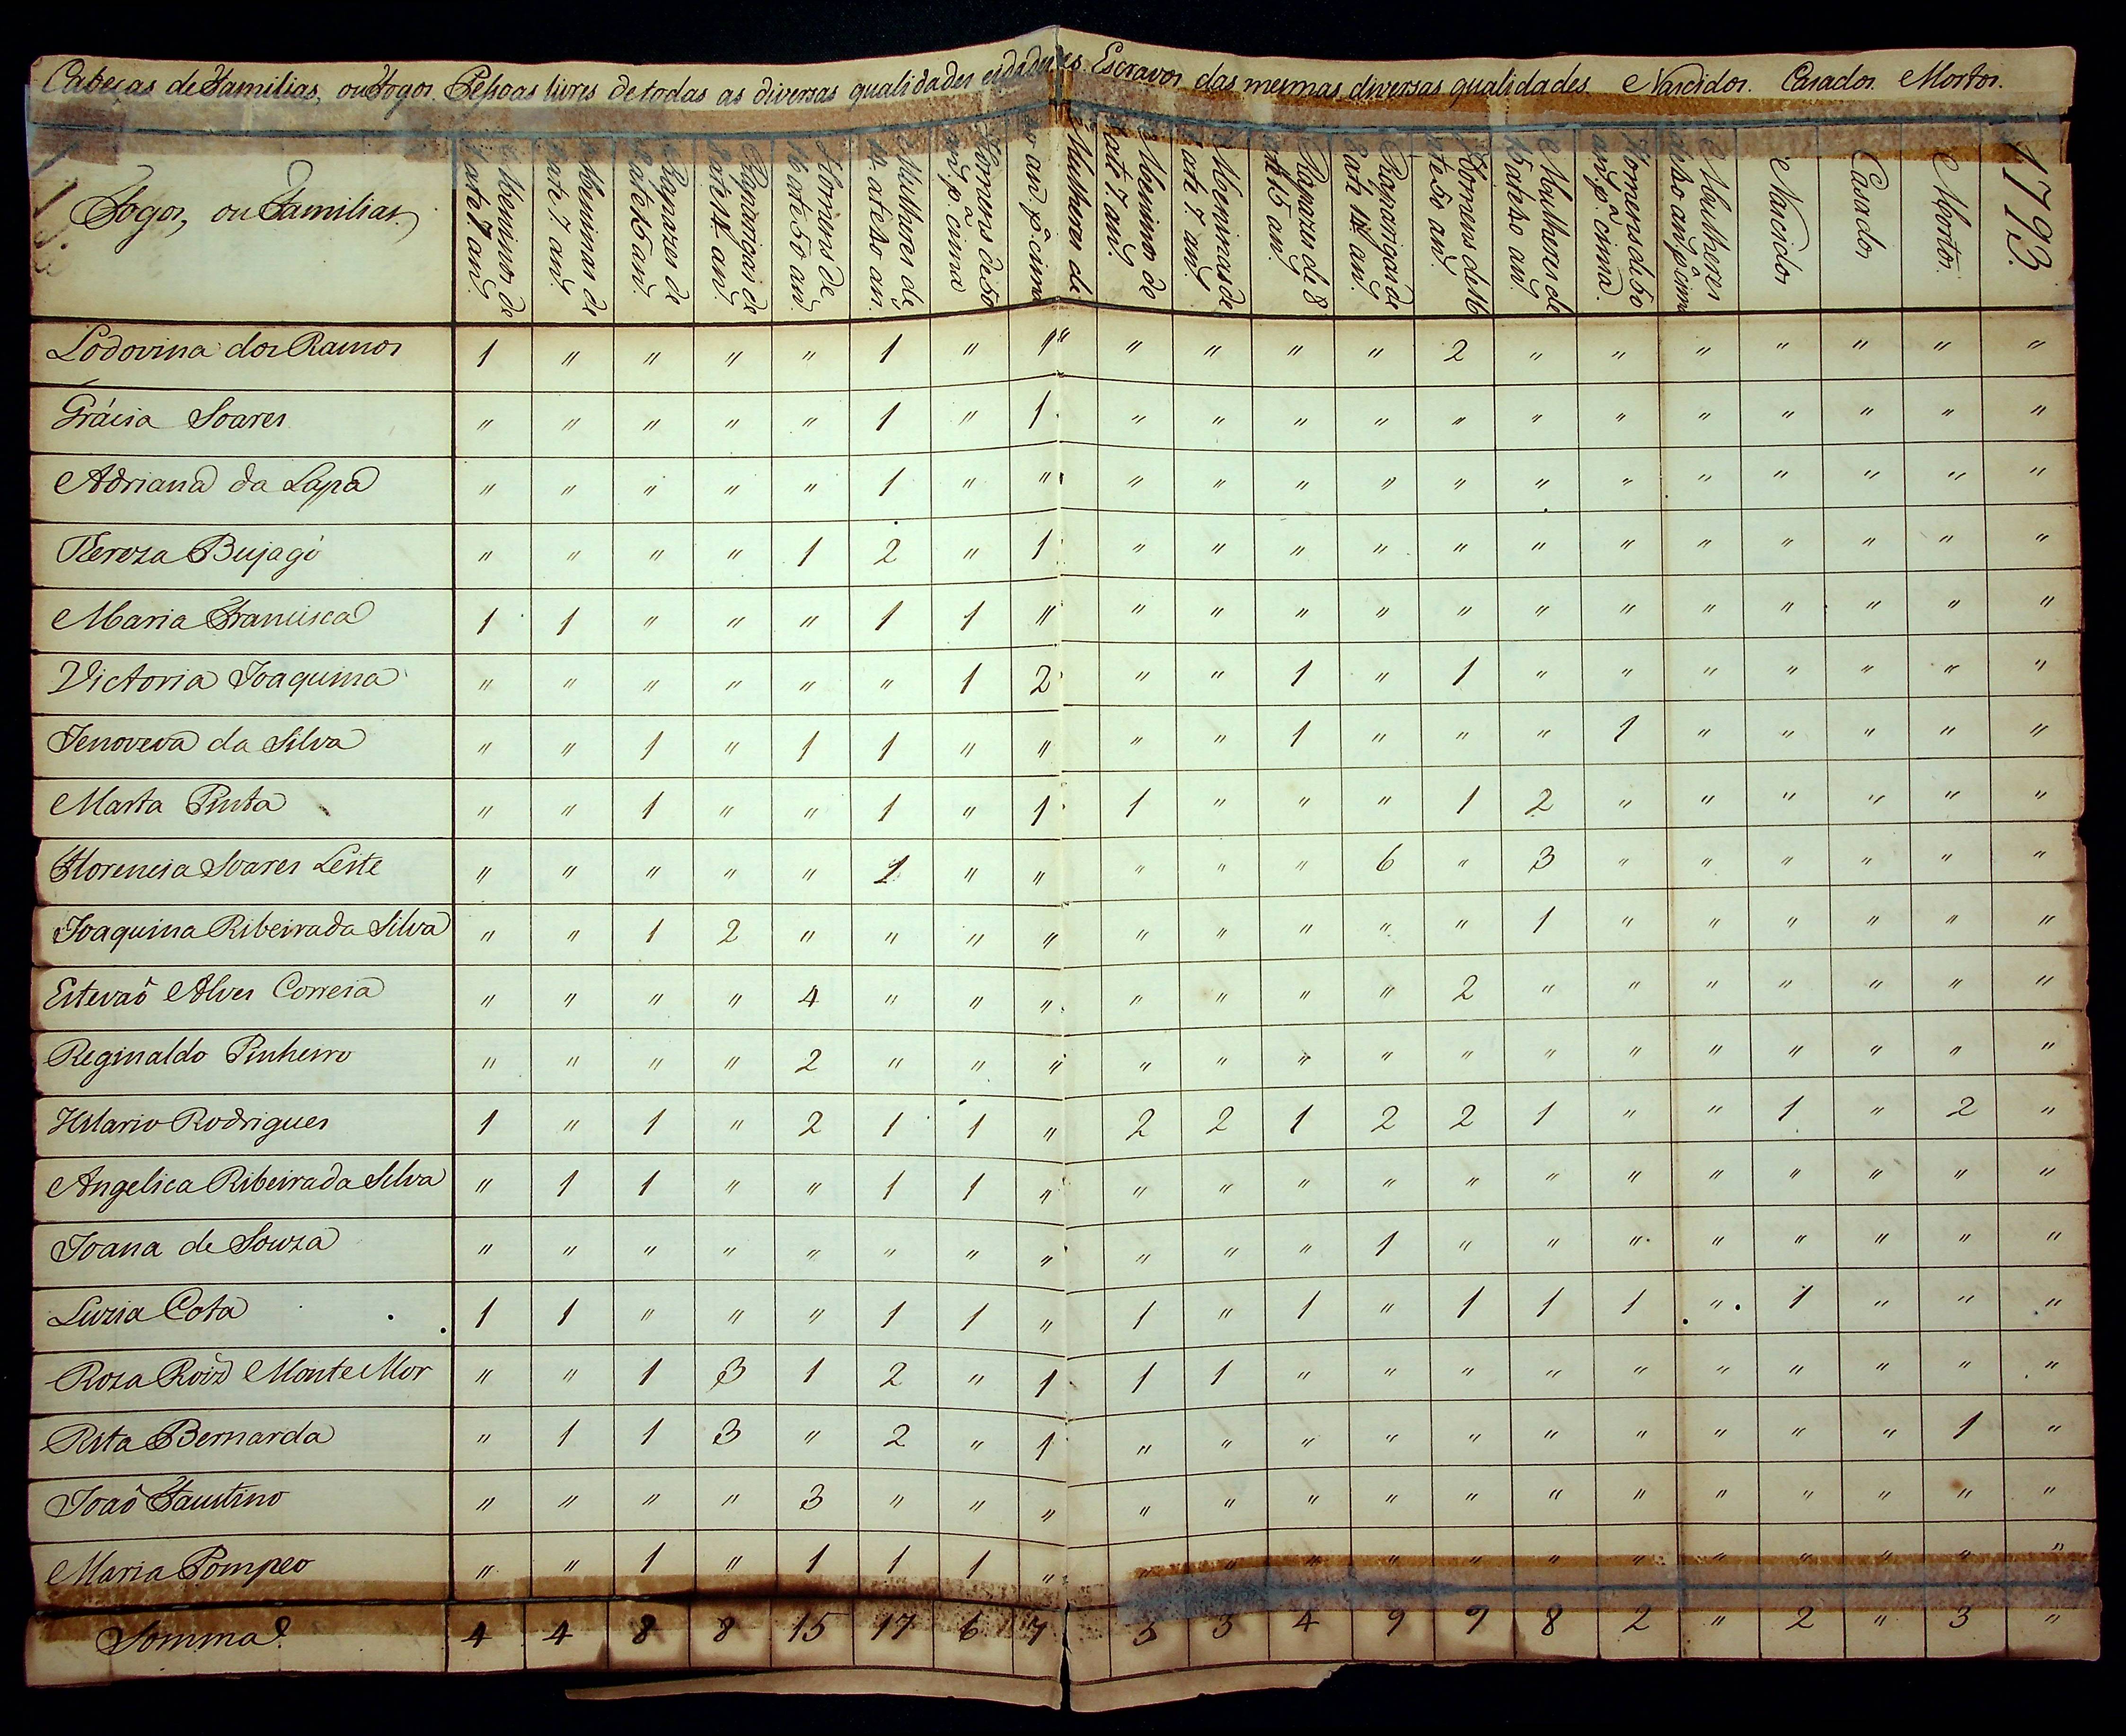 Cabeças de Familias, ou Fogos. Pessoas livres de todas as diversas qualidades eidades. Escravos das mesmas diversas qualidades. Nascidos. Casados. Mortos.
Fogos, ou Familias
Meninos de 1 ate 7 an.
Meninas de 1 ate 7. an.
Rapazes de 8 ate 15 an.
Raparigas de 8 ate 14 an.
Homens de 16 ate 50 an.
Mulheres de 15 ate 50 an.
Homens de 50 an. pª cima
Mulheres de 50 an. pª cima
Meninos de 1 ate 7 an.
Meninas de 1 ate 7. an.
Rapazes de 8 ate 15 an.
Raparigas de 8 ate 14 an.
Homens de 16 ate 50 an.
Mulheres de 15 ate 50 an.
Homens de 50 an. pª cima.
Mulheres de 50 an. pª cima
Nascidos
Casados
Mortos.
1793.
Lodovina dos Ramos 1 " " " " 1 " " " " " " 2 " " " " " " "
Grácia Soares " " " " " 1 " 1 " " " " " " " " " " " "
Adriana da Lapa " " " " " 1 " " " " " " " " " " " " " "
Tereza Bujagó " " " " 1 2 " 1 " " " " " " " " " " " "
Maria Francisca 1 1 " " " 1 1 " " " " " " " " " " " " "
Victoria Joaquina " " " " " " 1 2 " " 1 " 1 " " " " " " "
Jenoveva da Silva " " 1 " 1 1 " " " " 1 " " " 1 " " " " "
Marta Pinta " " 1 " " 1 " 1 1 " " " 1 2 " " " " " "
Florencia Soares Leite " " " " " 1 " " " " " 6 " 3 " " " " " "
Joaquina Ribeira da Silva " " 1 2 " " " " " " " " " 1 " " " " " "
Estevaõ Alves Correia " " " " 4 " " " " " " " 2 " " " " " " "
Reginaldo Pinheiro " " " " 2 " " " " " " " " " " " " " " "
Hilario Rodrigues 1 " 1 " 2 1 1 " 2 2 1 2 2 1 " " 1 " 2 "
Angelica Ribeira da Silva " 1 1 " " 1 1 " " " " " " " " " " " " "
Joana de Souza " " " " " " " " " " " 1 " " " " " " " "
Luzia Cota 1 1 " " " 1 1 " 1 " 1 " 1 1 1 " 1 " " "
Roza Roiz Monte Mor " " 1 3 1 2 " 1 1 1 " " " " " " " " " "
Rita Bernarda " 1 1 3 " 2 " 1 " " " " " " " " " " 1 "
Joaõ Faustino " " " " 3 " " " " " " " " " " " " " " "
Maria Pompeo " " 1 " 1 1 1 " " " " " " " " " " " " "
Somma 4 4 8 8 15 17 6 7 5 3 4 9 9 8 2 " 2 " 3 "